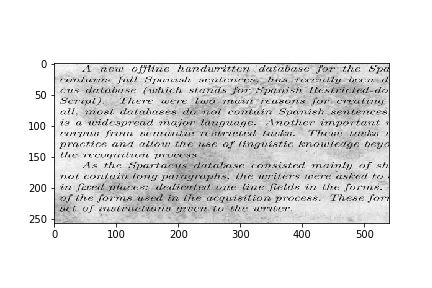 0
50
100
150
200
250
A new offline handwritten database for the Spa
contains full Spanish sentences, has recently been d
cus database (which stands for Spanish Restricted-do
Script). There were two main reasons for creating
all, most databases do not contain Spanish sentences
is a widespread major language. Another important
corpus from semantic restricted tasks. These tasks
practice and allow the use of linguistic knowledge beyo
the recognition process.
As the Spartacus database consisted mainly of sh
not contain long paragraphs, the writers were asked to
in fixed places: dedicated one line fields in the forms.
of the forms used in the acquisition process. These for
set of instructions given to the writer.
0 100 200 300 400 500